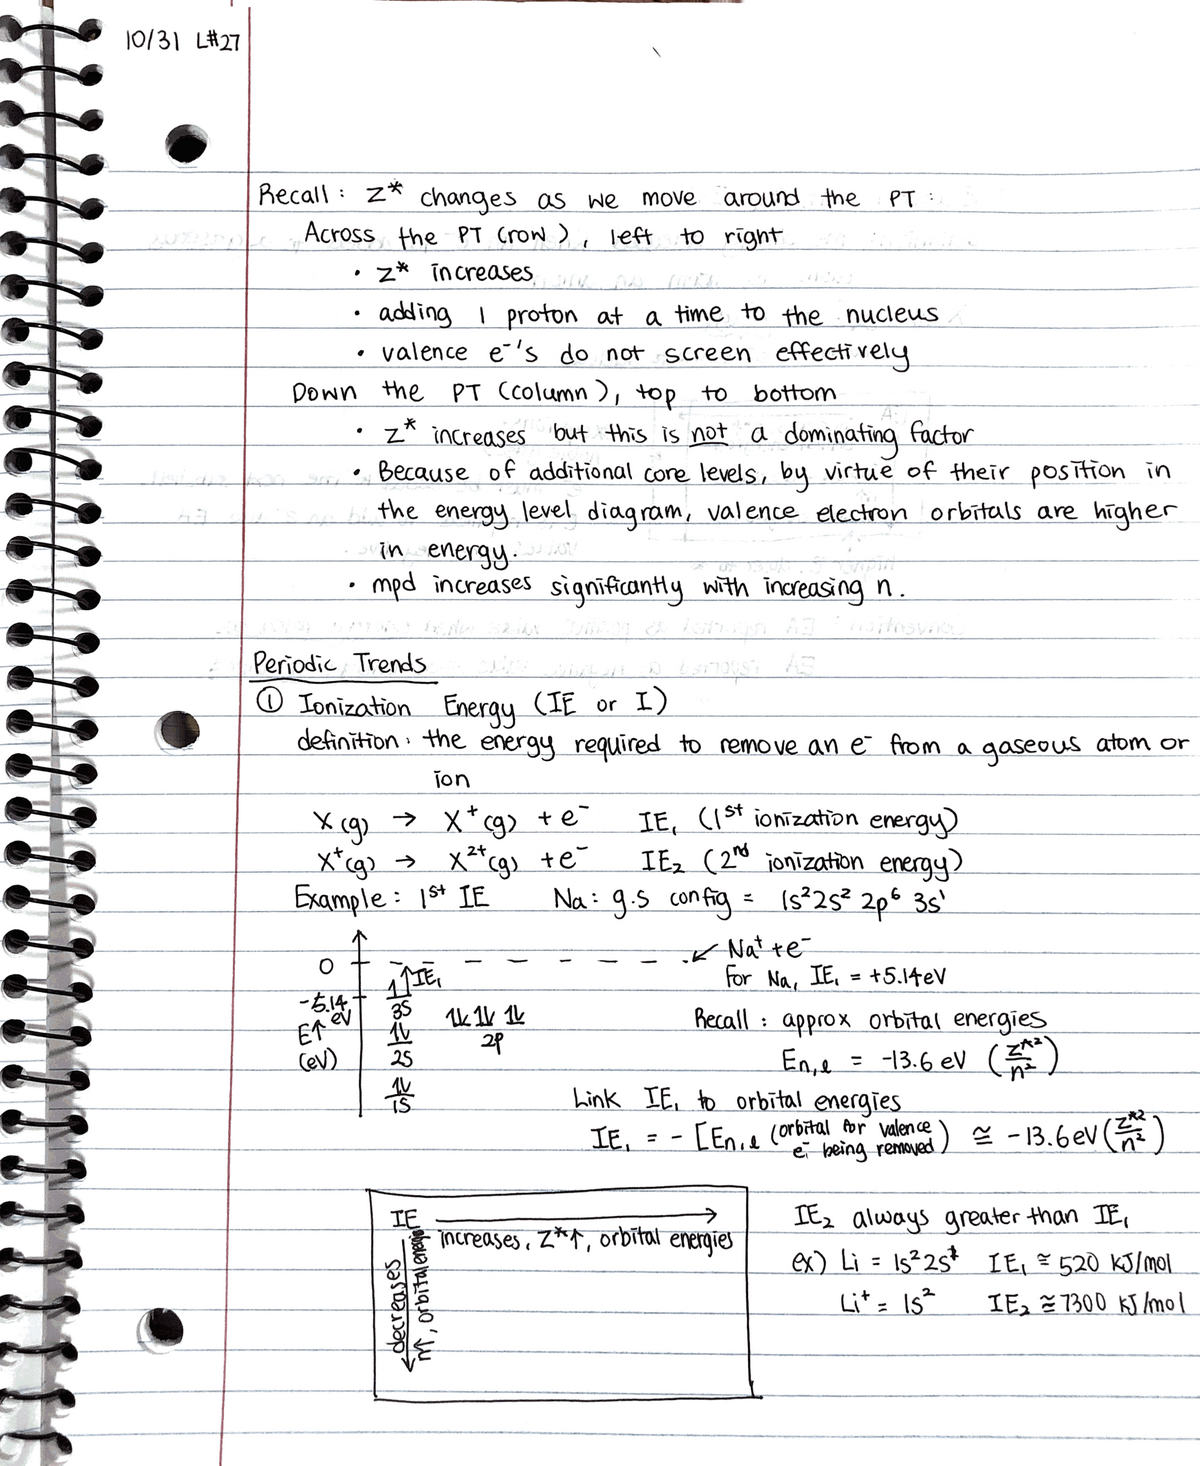 10/31 L#27
Recall : Z* changes as we move around the PT :
Across the PT (row), left to right
• Z* increases
• adding 1 proton at a time to the nucleus
• valence e⁻'s do not screen effectively
Down the PT (column), top to bottom
• Z* increases but this is not a dominating factor
• Because of additional core levels, by virtue of their position in
the energy level diagram, valence electron orbitals are higher
in energy.
• mpd increases significantly with increasing n.
Periodic Trends
① Ionization Energy (IE or I)
definition: the energy required to remove an e⁻ from a gaseous atom or
ion
X(g) → X⁺(g) + e⁻ IE₁ (1st ionization energy)
X⁺(g) → X²⁺(g) + e⁻ IE₂ (2nd ionization energy)
Example : 1st IE Na : g.s config = 1s²2s² 2p⁶ 3s¹
Na⁺ + e⁻
0
↑IE₁
For Na, IE₁ = +5.14eV
-5.14 eV
1
3s
E↑
(eV)
1l
2s
1l 1l 1l
2p
1l
1s
Recall : approx orbital energies
En,l = -13.6 eV (Z*²/n²)
Link IE₁ to orbital energies
IE₁ = - [En,l (orbital for valence e⁻ being removed) ≅ -13.6eV (Z*²/n²)
IE →
increases, Z*↑, orbital energies
decreases
n↑, orbital energy
IE₂ always greater than IE₁
ex) Li = 1s²2s¹ IE₁ ≅ 520 kJ/mol
Li⁺ = 1s² IE₂ ≅ 7300 kJ/mol